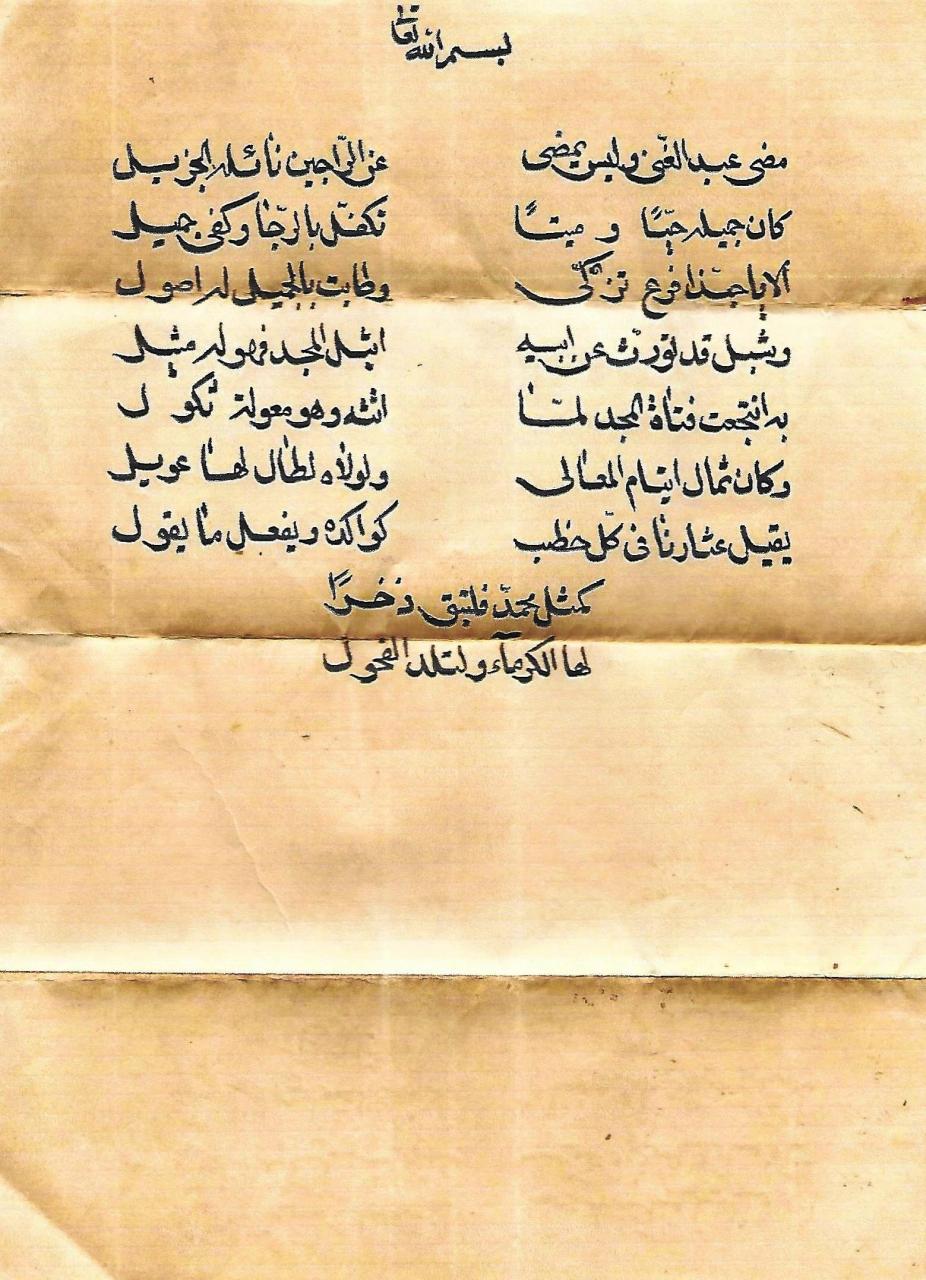 بسم الله تعالى
مضى عبد الغني وليس يمضى عن الراجين نائله الجزيل
كان جميله حيًا و ميتًا تكفّل بالرجا وكفى جميل
ألا يا حبّذا فرع تزكّى وطابت بالجميل له اصول
وشبل قد تورّث عن ابيه اثيل المجد فهو له مثيل
به انتجعت فتاة المجد لمّا اتته وهو معولة نكول
وكان ثمال ايتام المعالى ولولاه لطال لها عويل
يقيل عثارنا فى كلّ خطب كوالده ويفعل ما يقول
كمثل محمّد فلتبق ذخرًا
لها الكرمآء ولتلد الفحول